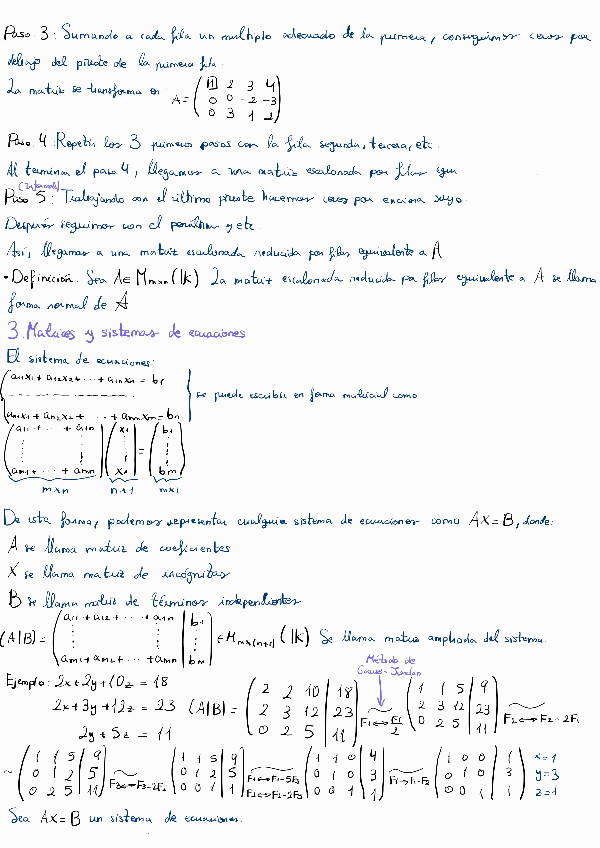 Paso 3: Sumando a cada fila un multiplo adecuado de la primera, conseguimos ceros por
debajo del pivote de la primera fila.
La matriz se transforma en A = ( 1 2 3 4
0 0 -2 -3
0 3 1 2 )
Paso 4: Repetir los 3 primeros pasos con la fila segunda, tercera, etc.
Al terminar el paso 4, llegamos a una matriz escalonada por filas
Paso 5: Trabajando con el último pivote hacemos ceros por encima suyo.
Después seguimos con el penúltimo y etc.
Así, llegamos a una matriz escalonada reducida por filas equivalente a A
• Definición. Sea A ∈ Mmxn(K) La matriz escalonada reducida por filas equivalente a A se llama
forma normal de A
3. Matrices y sistemas de ecuaciones
El sistema de ecuaciones:
a11x1 + a12x2 + ... + a1nxn = b1
se puede escribir en forma matricial como
am1x1 + am2x2 + ... + amnxn = bn
( a11 + ... + a1n ) ( x1 ) = ( b1 )
( am1 + ... + amn ) ( xn ) = ( bm )
mxn n+1 mx1
De esta forma, podemos representar cualquier sistema de ecuaciones como AX = B, donde:
A se llama matriz de coeficientes
X se llama matriz de incógnitas
B se llama matriz de términos independientes
(A|B) = ( a11 + a12 + ... + a1n | b1
am1 + am2 + ... + amn | bm ) ∈ Mmx(n+1) (K) Se llama matriz ampliada del sistema.
Método de
Gauss-Jordan
Ejemplo: 2x + 2y + 10z = 18
2x + 3y + 12z = 23
2y + 5z = 11
(A|B) = ( 2 2 10 | 18
2 3 12 | 23
0 2 5 | 11 ) ~ F1↔F1/2 ( 1 1 5 | 9
2 3 12 | 23
0 2 5 | 11 ) ~ F2↔F2-2F1
~ ( 1 1 5 | 9
0 1 2 | 5
0 2 5 | 11 ) ~ F3↔F3-2F2 ( 1 1 5 | 9
0 1 2 | 5
0 0 1 | 1 ) ~ F1↔F1-5F3
F2↔F2-2F3 ( 1 1 0 | 4
0 1 0 | 3
0 0 1 | 1 ) ~ F1↔F1-F2 ( 1 0 0 | 1
0 1 0 | 3
0 0 1 | 1 ) x=1
y=3
z=1
Sea AX = B un sistema de ecuaciones.